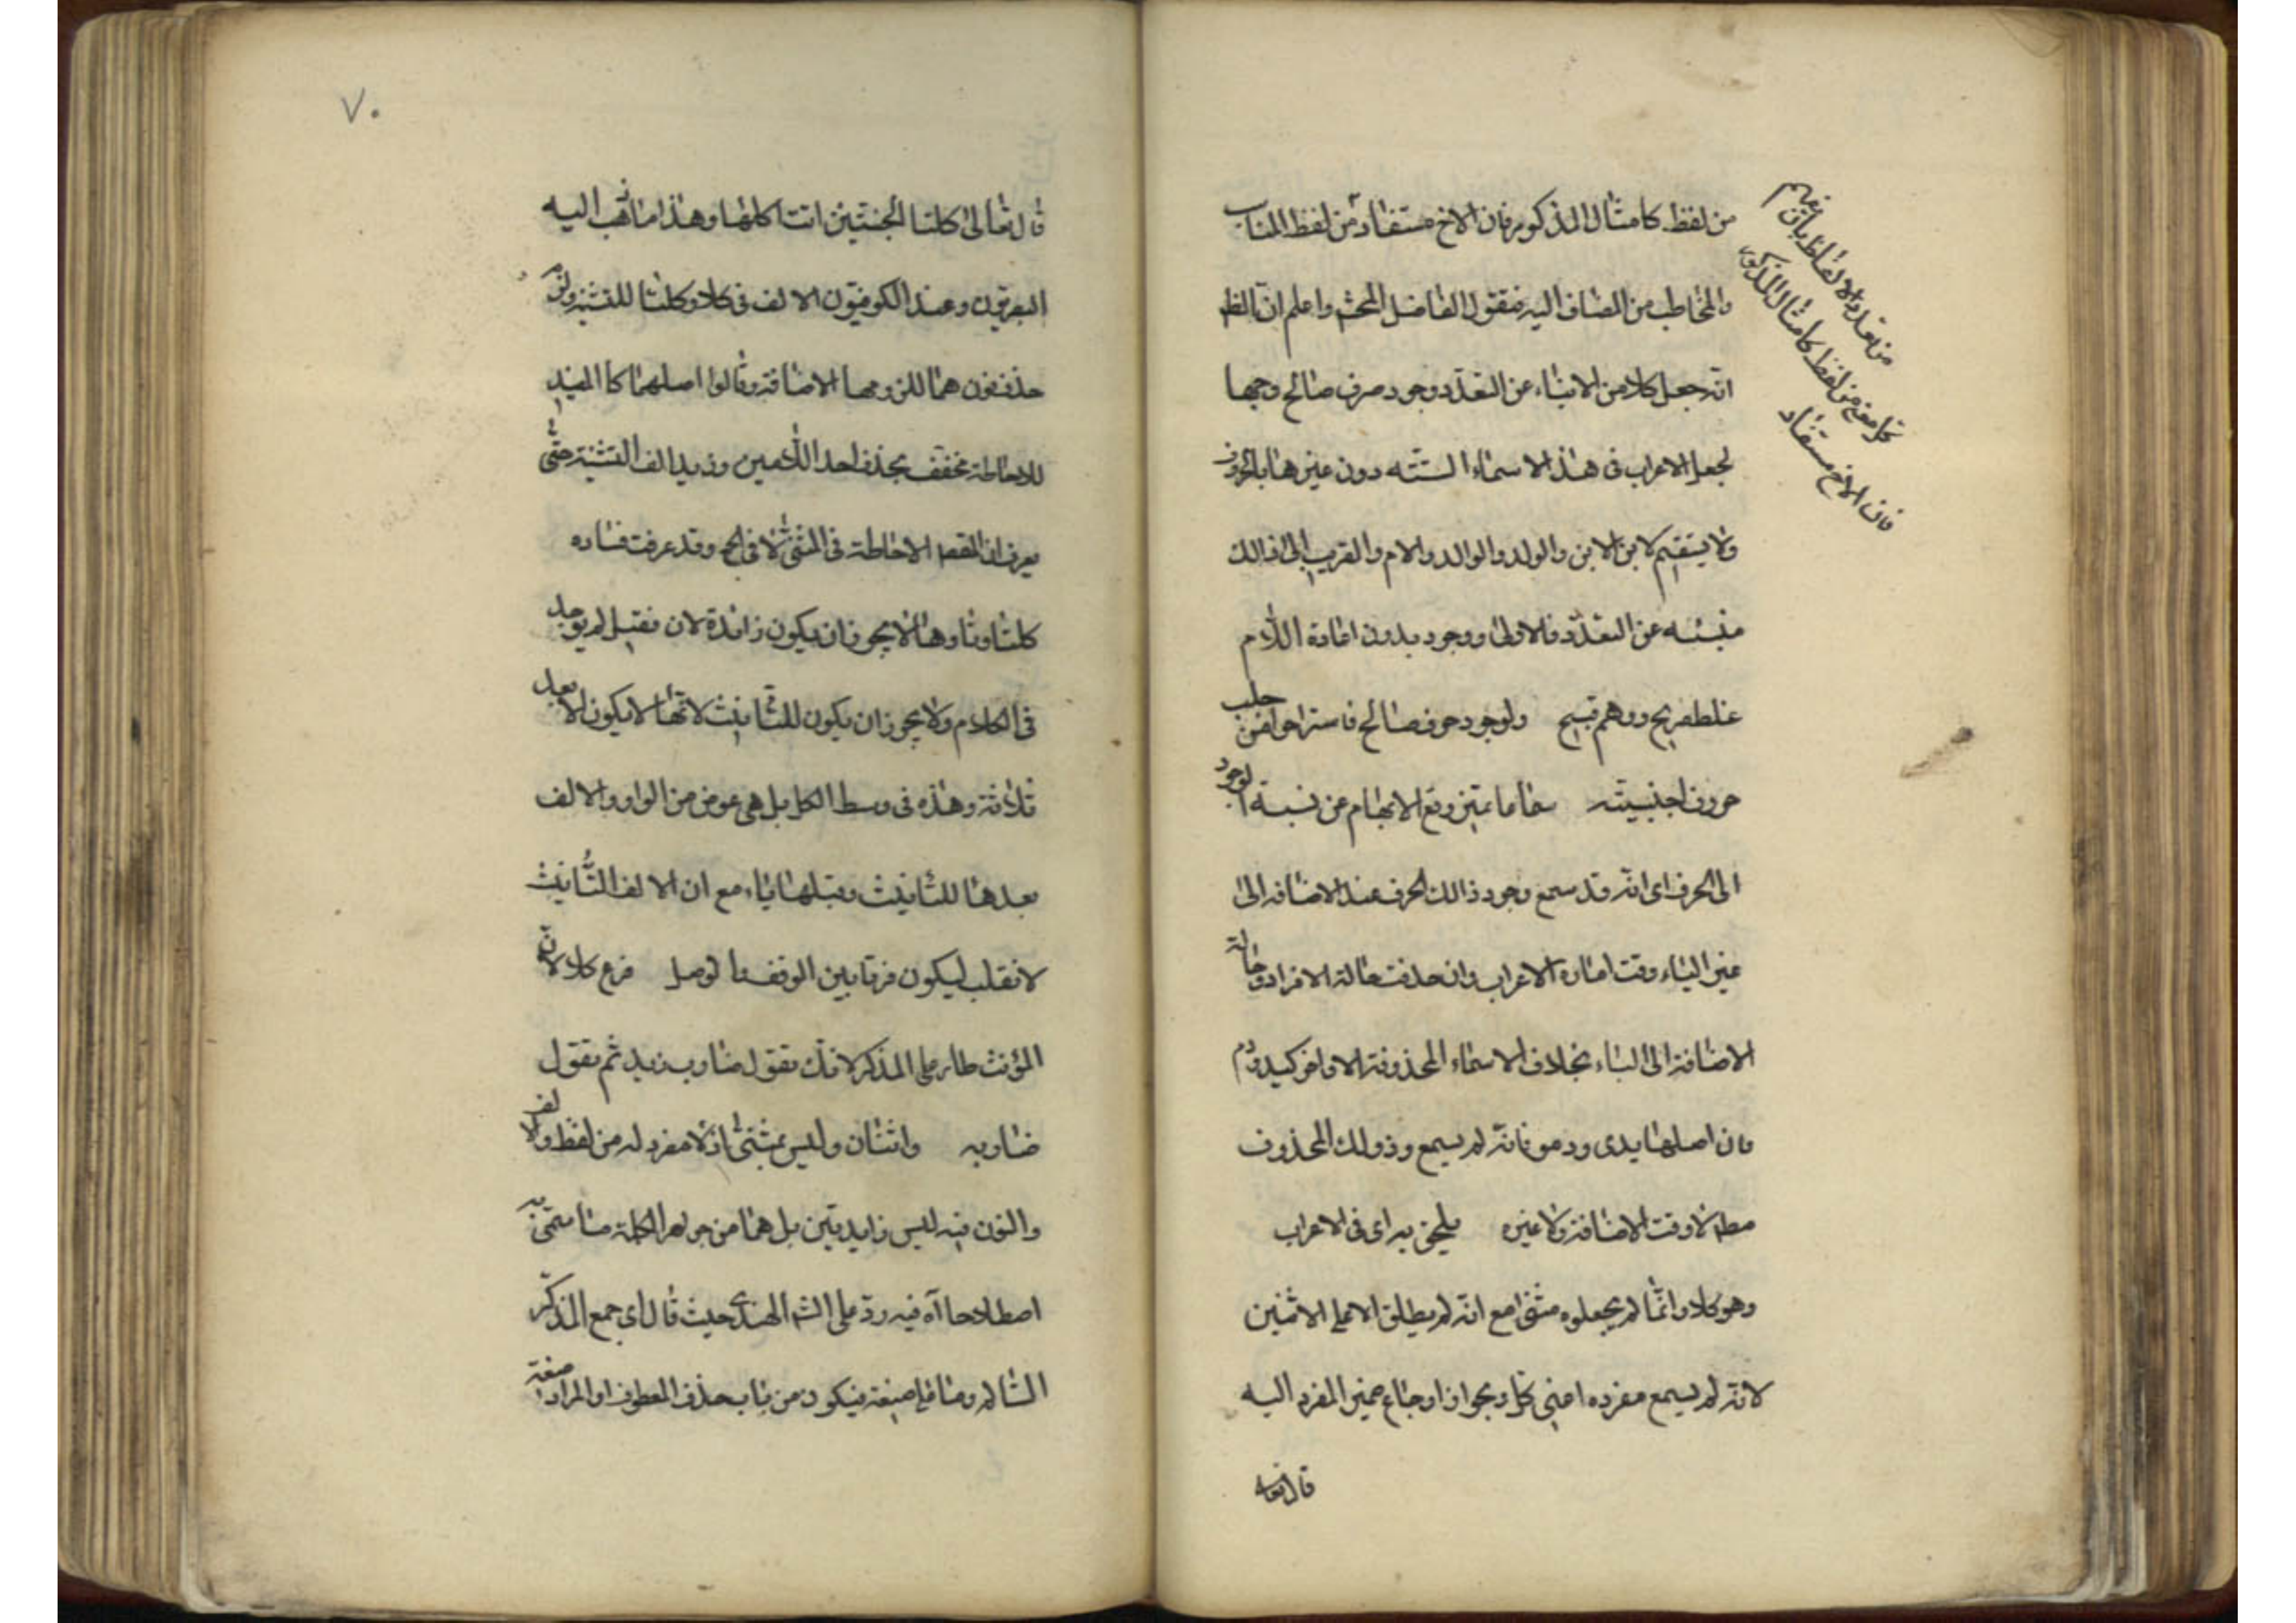 من لفظ كامثال المذكور فان الاخ مستفاد من لفظ المناب
والمخاطب من المضاف اليه فنقول الفاضل المحشى واعلم ان الظ
انه جعل كلا من الانباء عن التعدد ووجود حرف صالح وجها
لجعل الاعراب فى هذا الاسماء الستته دون غيرها بالحروف
ولا يستقيم لابن الابن والولد والوالد والام والقريب الى اذالك
منبئه عن التعدد فالاولى ووجود بدون اعادة اللام
غلط صريح ووهم قبيح ولوجود حرف صالح فاستراحوا من جلب
حروف اجنبيته سماعا تميز رفع الابهام عن نسبة الوجود
الى الحرف اى انه قد سمع وجود ذالك الحرف عند الاضافه الى
غير الياء وقت اعادة الاعراب وان حذفت حالة الافراد وحالة
الاضافة الى الياء بخلاف الاسماء المحذوفة الاواخر كيد ودم
فان اصلها يدى ودمو فانه لم يسمع وذولك المحذوف
مط لا وقت الاضافة ولا غيره يلحق به اى فى الاعراب
وهو كلا وانما لم يجعلوه مثنى مع انه لم يطلق الا على الاثنين
لانه لم يسمع مفرده اعنى كل ويجواز ارجاع ضمير المفرد اليه
قال تعالى
من تعدد الالفاظ بان يفهم
كل معنى من لفظ كامثال المذكور
فان الاخ مستفاد
٧٠
قال تعالى كلتا الجنتين اتت اكلها وهذا ما ذهب اليه
البصريون وعند الكوفيون الالف فى كلا وكلتا للتثنيه ولزم
حذف نونهما للزومها الاضافة وقالوا اصلهما كل المفيد
للاحاطة مخفف بحذف احد اللامين وزيد الف التثنية حتى
يعرف ان المقصد الاحاطة فى المثنى لا فى الجمع وقد عرفت فساده
كلتا وتاوها لا يجوز ان يكون زائدة لان فعتيل لم يوجد
فى الكلام ولا يجوز ان يكون للتانيث لانها لا يكون الا بعد
ثلاثة وهذه فى وسط الكل بل هى عوض من الواو والالف
بعدها للتانيث وقبلها ياء مع ان الالف التانيث
لا تقلب ليكون فرقا بين الوقف والوصل فرع كلا لان
المؤنث طار على المذكر لانك تقول ضارب زيد ثم تقول
ضاربه واثنان وليس بمثنى اذ لا مفرد له من لفظه والالف
والنون فيه ليس زايديتين بل هما من جوهر الكلمة ما سمى به
اصطلاحا آه فيه رد على الشم الهندى حيث قال اى جمع المذكر
السالم وما على صيغته فيكون من باب حذف المعطوف او المراد صيغة